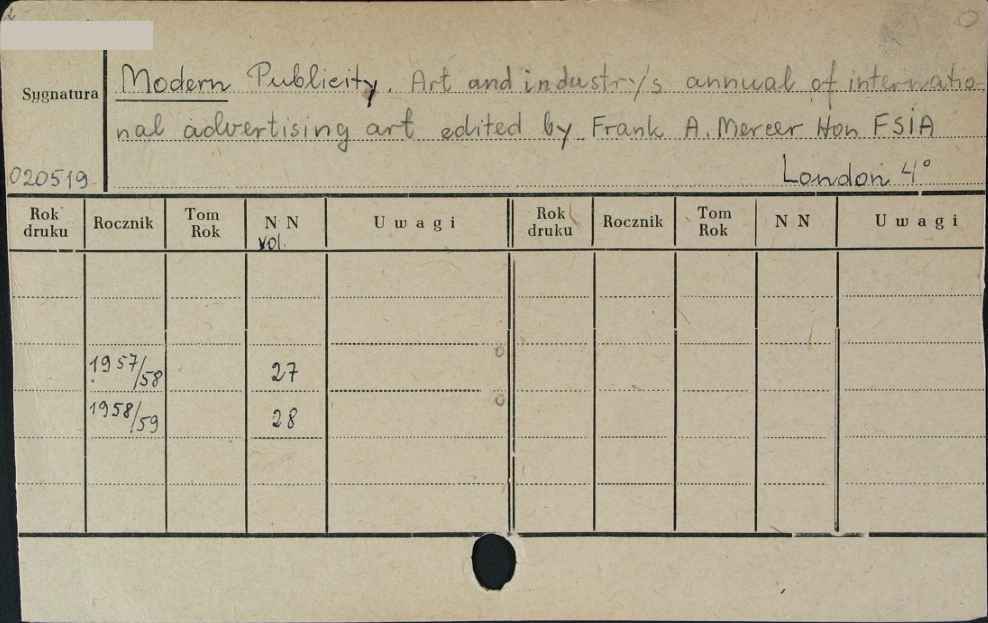 Sygnatura
Modern Publicity. Art and industry's annual of internatio-
nal advertising art edited by Frank A. Mercer Hon FSIA
020519
London 4°
Rok druku Rocznik Tom Rok N N vol. Uwagi Rok druku Rocznik Tom Rok N N Uwagi
1957/58 27
1958/59 28